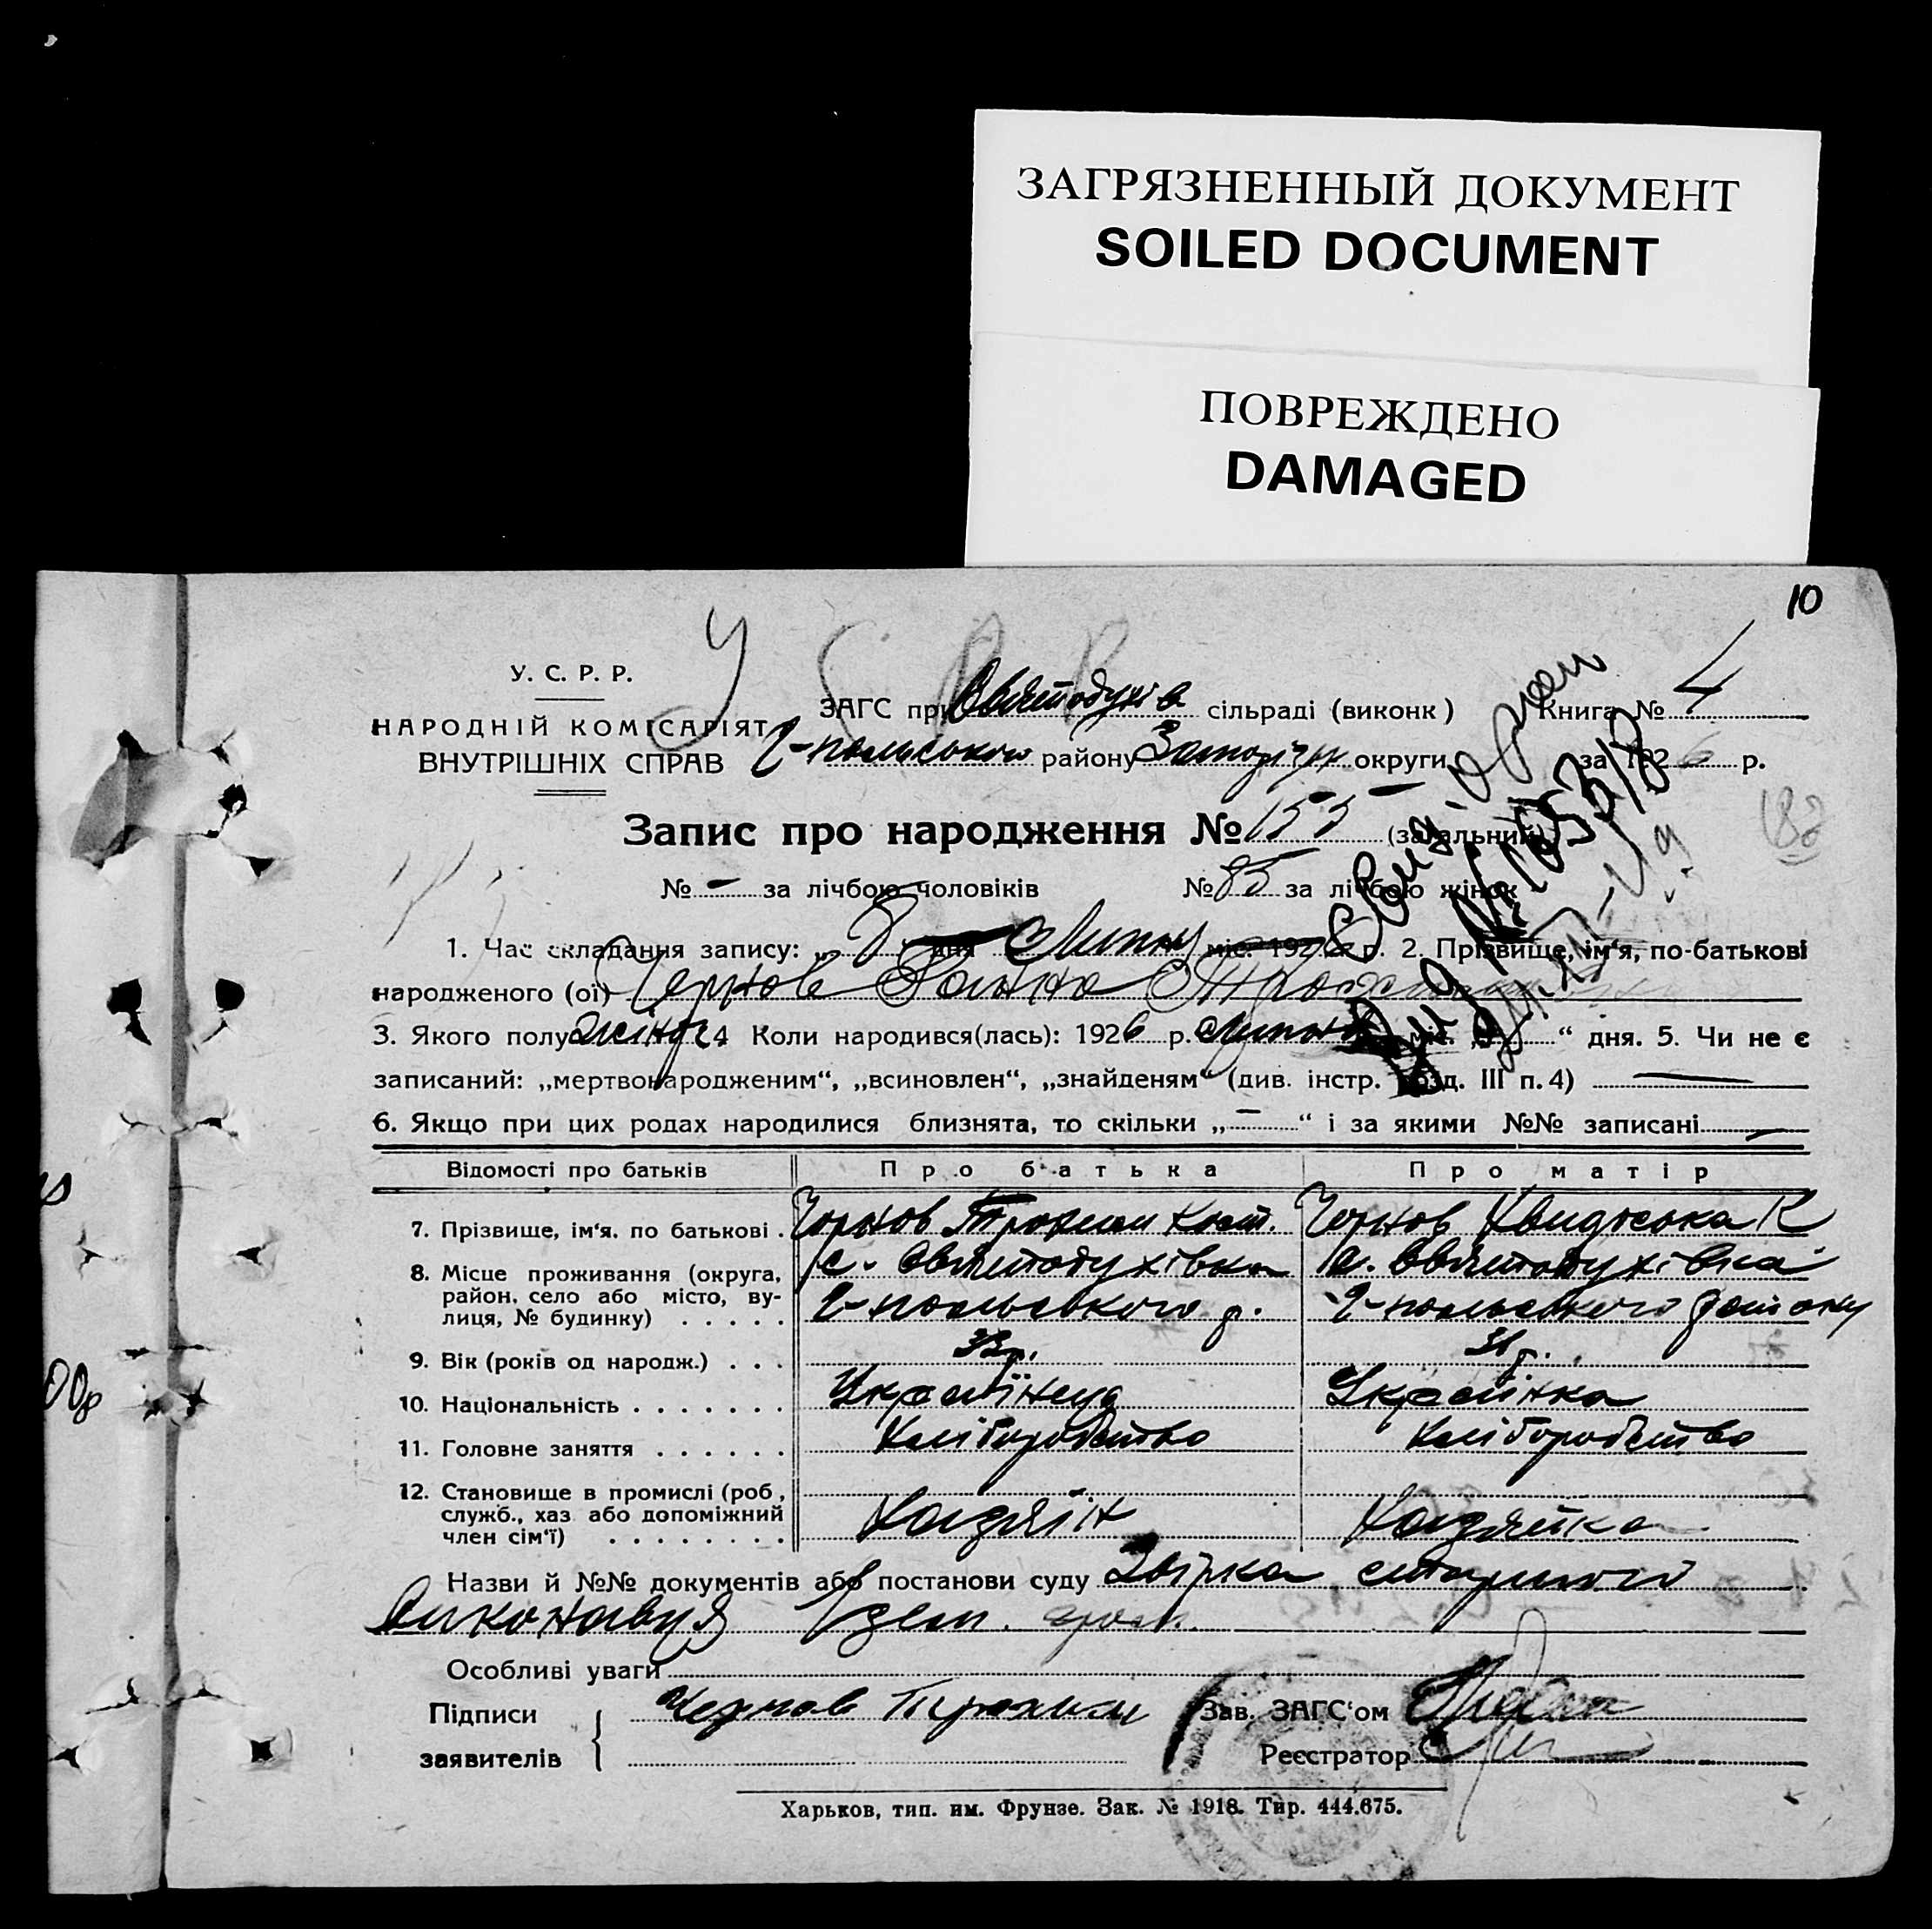 ЗАГРЯЗНЕННЫЙ ДОКУМЕНТ
SOILED DOCUMENT
ПОВРЕЖДЕНО
DAMAGED
10
У С Р Р
У. С. Р. Р.
НАРОДНІЙ КОМІСАРІЯТ
ВНУТРІШНІХ СПРАВ
ЗАГС при Святодухів сільраді (виконк) Книга № 4
Г-польського району Запоріжж округи за 1926 р.
Запис про народження № 155 (загальний)
183
№ – за лічбою чоловіків № 85 за лічбою жінок
1. Час складання запису: „8“ дня Липня міс. 192 р. 2. Прізвище, ім‘я, по-батькові
народженого (ої) Чернов Ганна
3. Якого полу жіноч 4 Коли народився(лась): 1926 р. Липня міс. „ “ дня. 5. Чи не є
записаний: „мертвонародженим“, „всиновлен“, „знайденям“ (див. інстр. розд. III п. 4) —
6. Якщо при цих родах народилися близнята, то скільки „–“ і за якими №№ записані —
Відомості про батьків Про батька Про матір
7. Прізвище, ім‘я, по батькові . Чорнов Трохим Кост. Чорнов К
8. Місце проживання (округа, район, село або місто, вулиця, № будинку) . . . . . с. Святодухівка с. Святодухівка
Г-польського р. Г-польського району
9. Вік (років од народж.) . . . 32 р. 31 р.
10. Національність . . . . . . . Українець Українка
11. Головне заняття . . . . . . Хліборобство Хліборобство
12. Становище в промислі (роб., служб., хаз. або допоміжний член сім‘ї) . . . . . . . . Хазяїн Хазяйка
Назви й №№ документів або постанови суду Довірка старшого
виконавця зем. гром.
Особливі уваги
Підписи заявителів Чернов Трохим
Зав. ЗАГС‘ом
Реєстратор
Харьков, тип. им. Фрунзе. Зак. № 1918. Тир. 444.675.